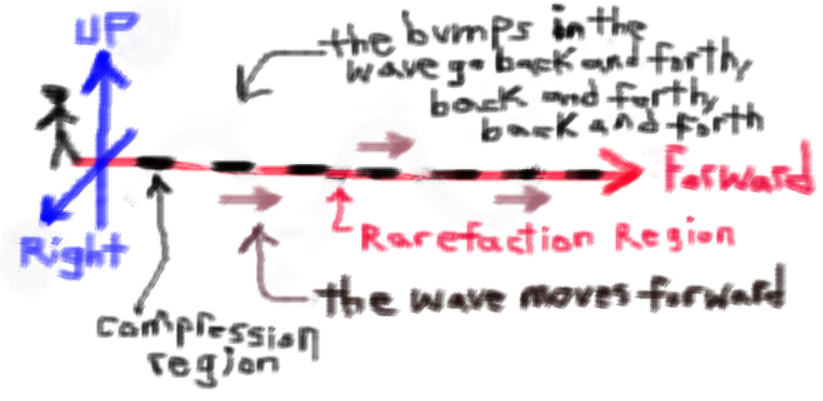 UP
the bumps in the
wave go back and forth,
back and forth,
back and forth
Forward
Right
Rarefaction Region
the wave moves forward
compression
region